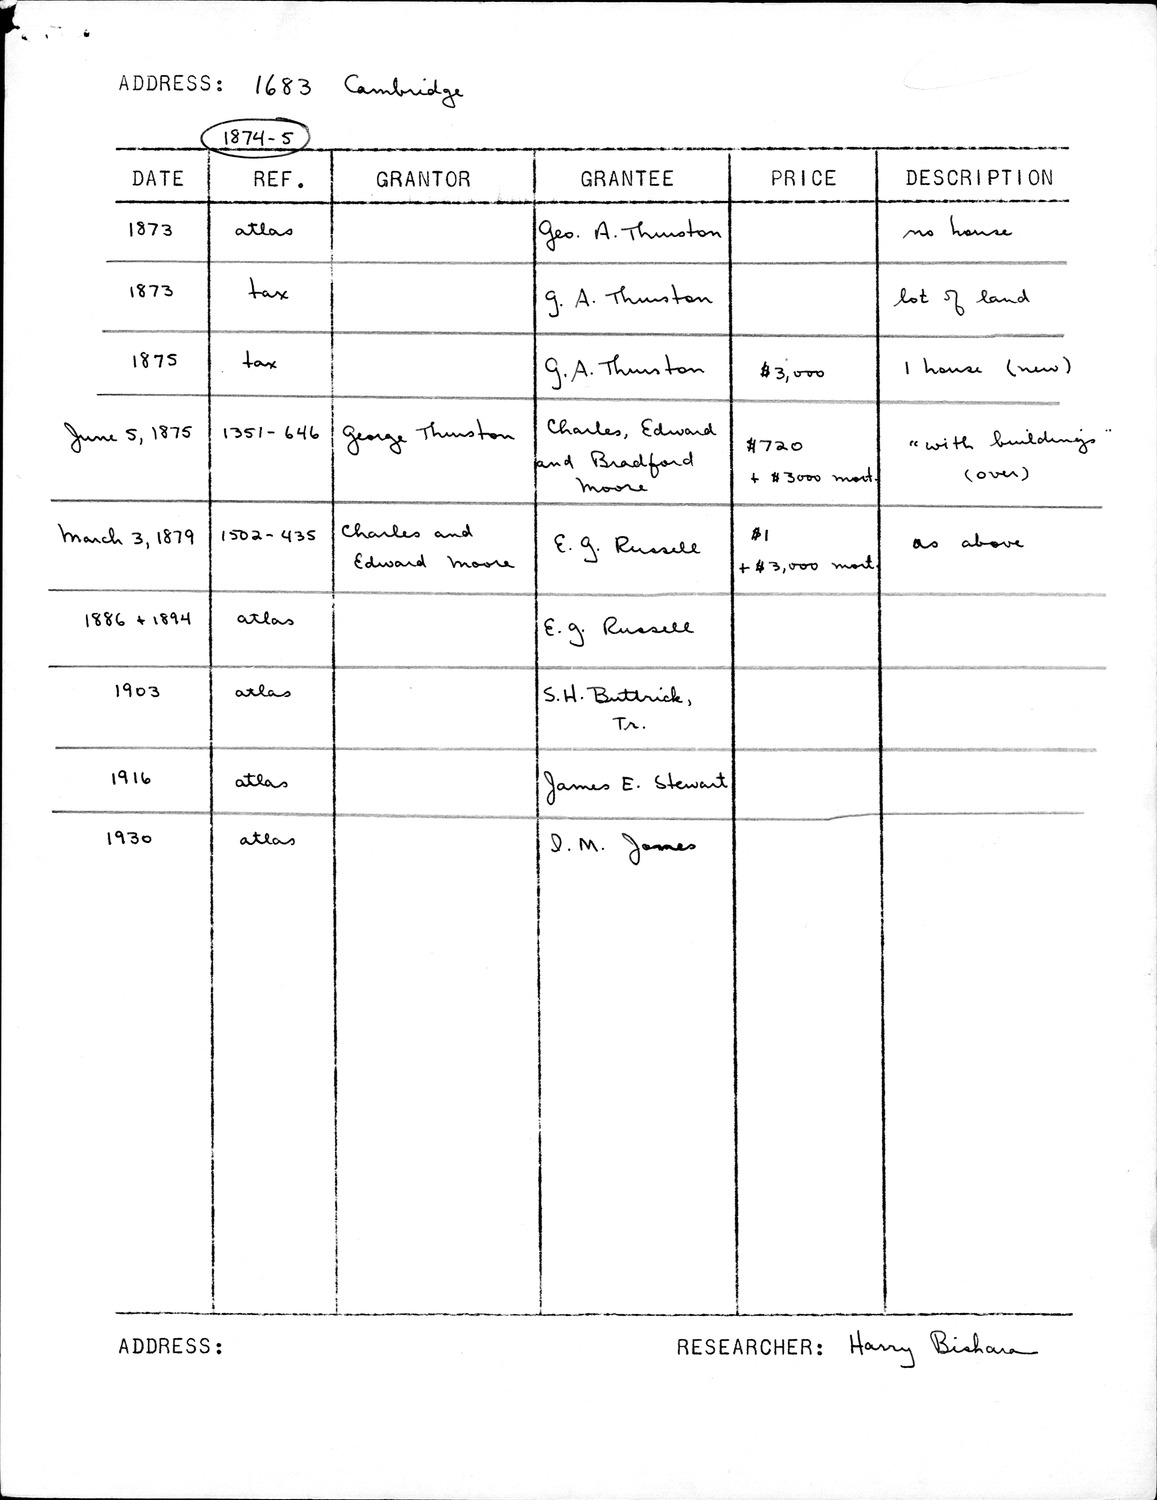 ADDRESS: 1683 Cambridge
1874-5
DATE REF. GRANTOR GRANTEE PRICE DESCRIPTION
1873 atlas Geo. A. Thurston no house
1873 tax G. A. Thurston lot of land
1875 tax G. A. Thurston $3,000 1 house (new)
June 5, 1875 1351-646 George Thurston Charles, Edward $720 "with buildings"
and Bradford + $3000 mort. (over)
Moore
March 3, 1879 1502-435 Charles and E. G. Russell $1 as above
Edward Moore + $3,000 mort.
1886 + 1894 atlas E. G. Russell
1903 atlas S.H. Buttrick,
Tr.
1916 atlas James E. Stewart
1930 atlas I. M. James
ADDRESS: RESEARCHER: Harry Bishara